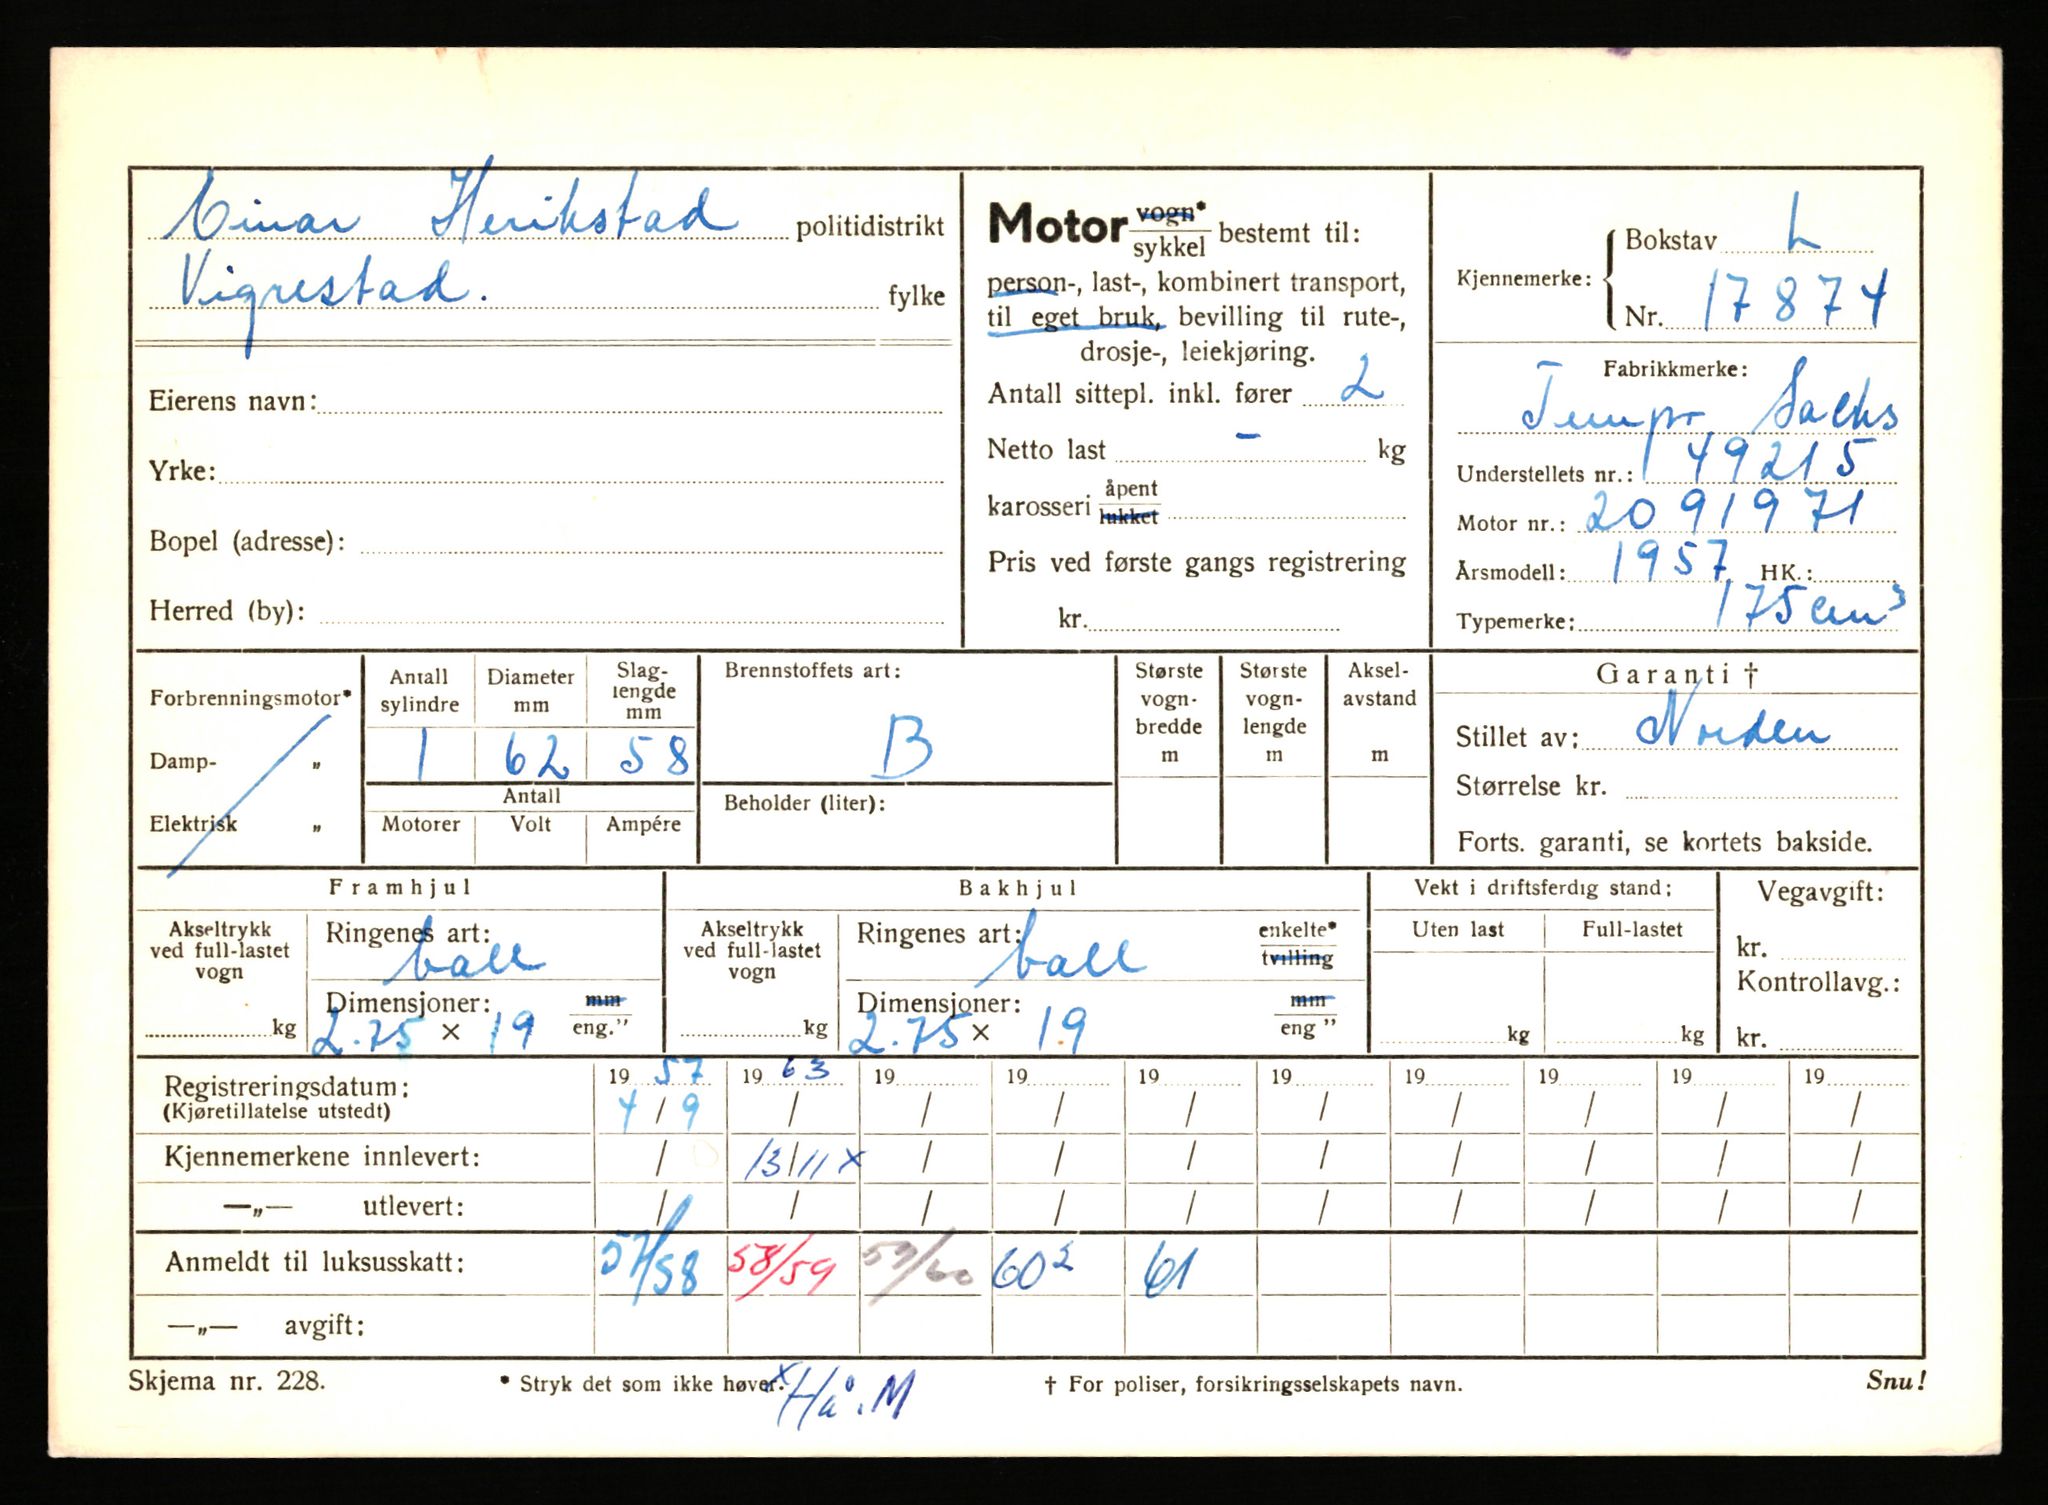 Einar Herikstad politidistrikt
Vigrestad. fylke
Eierens navn:
Yrke:
Bopel (adresse):
Herred (by):
Motor vogn* sykkel bestemt til:
person-, last-, kombinert transport,
til eget bruk, bevilling til rute-,
drosje-, leiekjøring.
Antall sittepl. inkl. fører 2
Netto last - kg
karosseri åpent lukket
Pris ved første gangs registrering
kr.
Kjennemerke: Bokstav L
Nr. 17874
Fabrikkmerke:
Tempo Sachs
Understellets nr.: 149215
Motor nr.: 2091971
Årsmodell: 1957 HK.:
Typemerke: 175 cm³
Forbrenningsmotor*
Damp- „
Elektrisk „
Antall sylindre Diameter mm Slag-lengde mm
1 62 58
Antall
Motorer Volt Ampére
Brennstoffets art:
B
Beholder (liter):
Største vogn-bredde m
Største vogn-lengde m
Aksel-avstand m
Garanti †
Stillet av: Norden
Størrelse kr.
Forts. garanti, se kortets bakside.
Framhjul
Akseltrykk ved full-lastet vogn
kg
Ringenes art: ball
Dimensjoner: mm
2.75 x 19 eng."
Bakhjul
Akseltrykk ved full-lastet vogn
kg
Ringenes art: ball enkelte* tvilling
Dimensjoner: mm
2.75 x 19 eng "
Vekt i driftsferdig stand:
Uten last Full-lastet
kg kg
Vegavgift:
kr.
Kontrollavg.:
kr.
Registreringsdatum: 19 57 19 63 19 19 19 19 19 19 19 19
(Kjøretillatelse utstedt) 4/9 / / / / / / / / /
Kjennemerkene innlevert: / 13/11 x / / / / / / / /
—„— utlevert: / / / / / / / / / /
Anmeldt til luksusskatt: 57/58 58/59 59/60 60² 61
—„— avgift:
Skjema nr. 228. * Stryk det som ikke høver. † For poliser, forsikringsselskapets navn. Snu!
x Hå.M